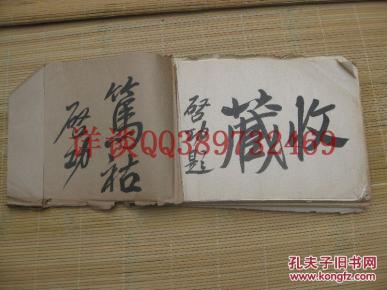 收藏
启功题
篤祜
启功
详谈QQ389732469
孔夫子旧书网
www.kongfz.com